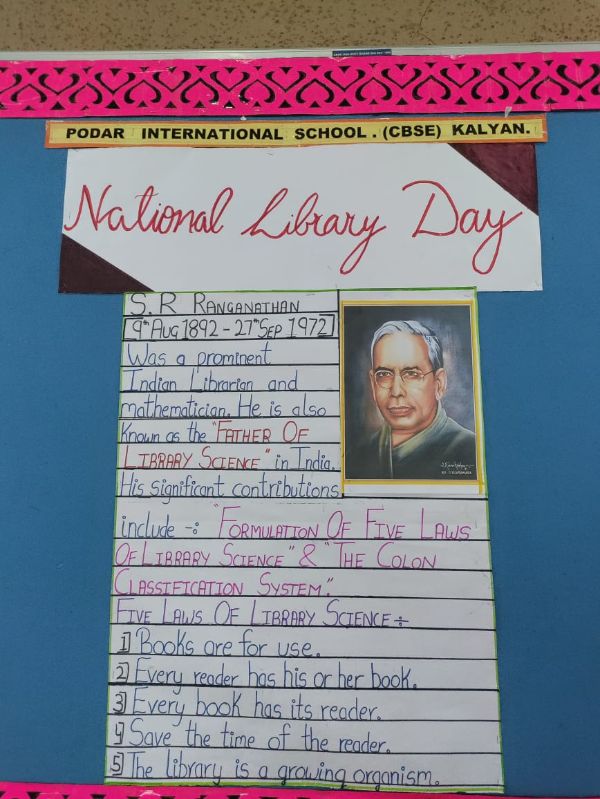 PODAR INTERNATIONAL SCHOOL. (CBSE) KALYAN.
National Library Day
S. R RANGANATHAN
9th AUG 1892 - 27th SEP 1972
Was a prominent
Indian Librarian and
mathematician. He is also
known as the "FATHER OF
LIBRARY SCIENCE" in India.
His significant contributions
include -: "FORMULATION OF FIVE LAWS
OF LIBRARY SCIENCE" & "THE COLON
CLASSIFICATION SYSTEM."
FIVE LAWS OF LIBRARY SCIENCE÷
1] Books are for use.
2] Every reader has his or her book.
3] Every book has its reader.
4] Save the time of the reader.
5] The library is a growing organism.